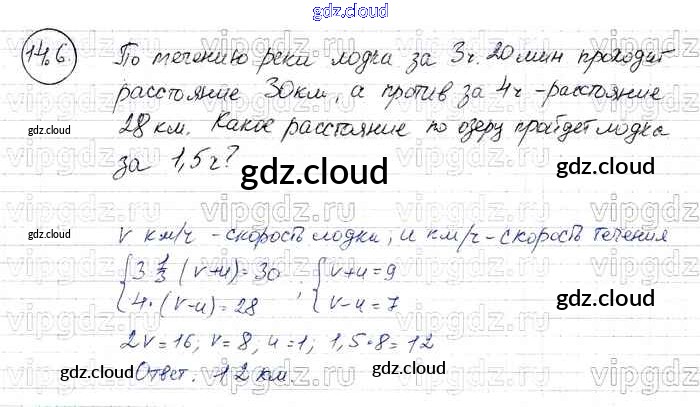 gdz.cloud
14.6. По течению реки лодка за 3ч. 20 мин проходит
расстояние 30 км, а против за 4ч - расстояние
28 км. Какое расстояние по озеру пройдет лодка
за 1,5ч?
gdz.cloud
gdz.cloud
gdz.cloud
gdz.cloud
v км/ч - скорость лодки; u км/ч - скорость течения
{3 1/3 · (v+u) = 30 ; {v+u = 9
{4 · (v-u) = 28 {v-u = 7
gdz.cloud
2v = 16; v = 8, u = 1; 1,5·8 = 12
Ответ: 12 км.
gdz.cloud
gdz.cloud